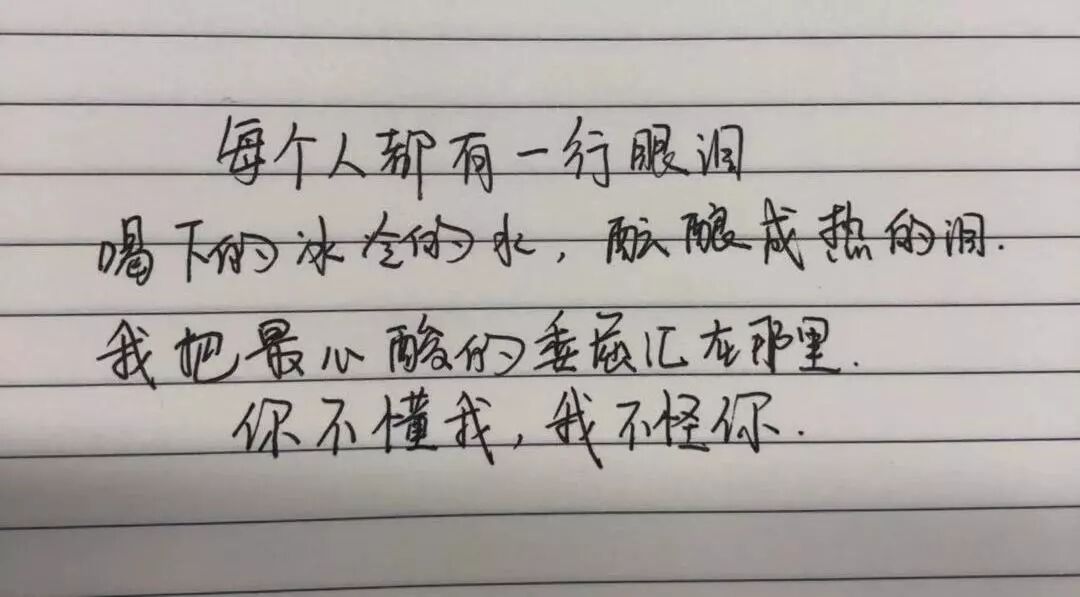 每个人都有一行眼泪
喝下的冰冷的水，酝酿成热的泪.
我把最心酸的委屈汇在那里.
你不懂我，我不怪你.